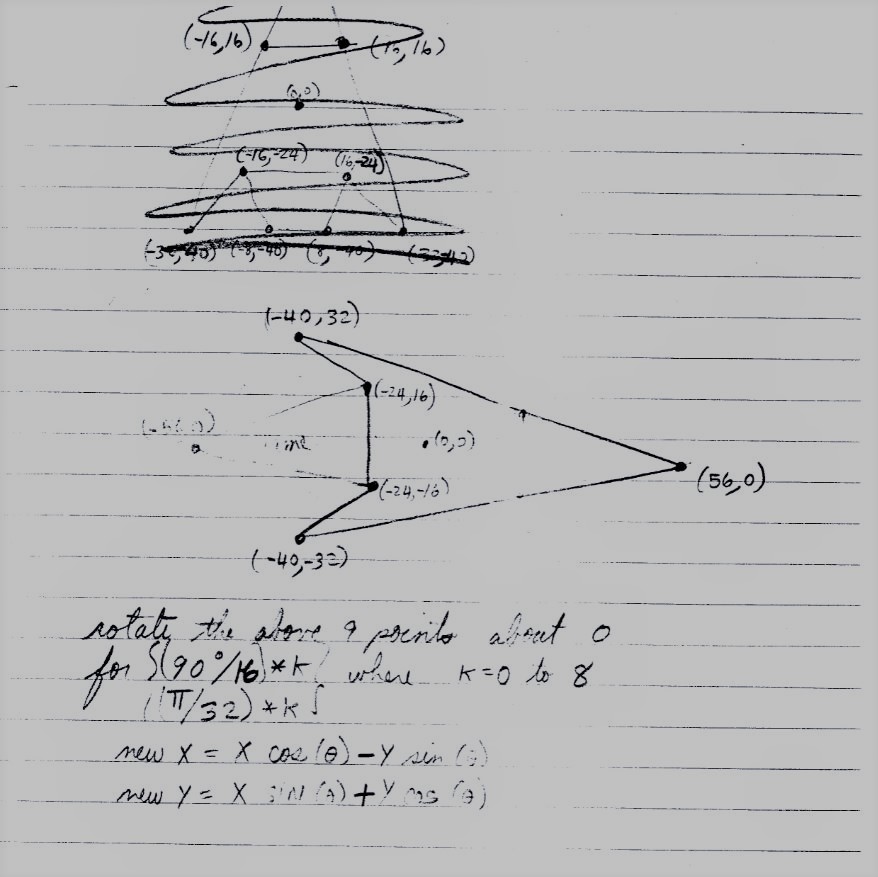 (-16,16) (16,16)
(0,0)
(-16,-24) (16,-24)
(-32,-40) (-8,-40) (8,-40)
(-40,32)
(-24,16)
(0,0)
(56,0)
(-24,-16)
(-40,-32)
rotate the above 9 points about 0
for {(90°/16)*k} where k=0 to 8
{(π/32)*k}
new X = X cos(θ) - Y sin(θ)
new Y = X sin(θ) + Y cos(θ)